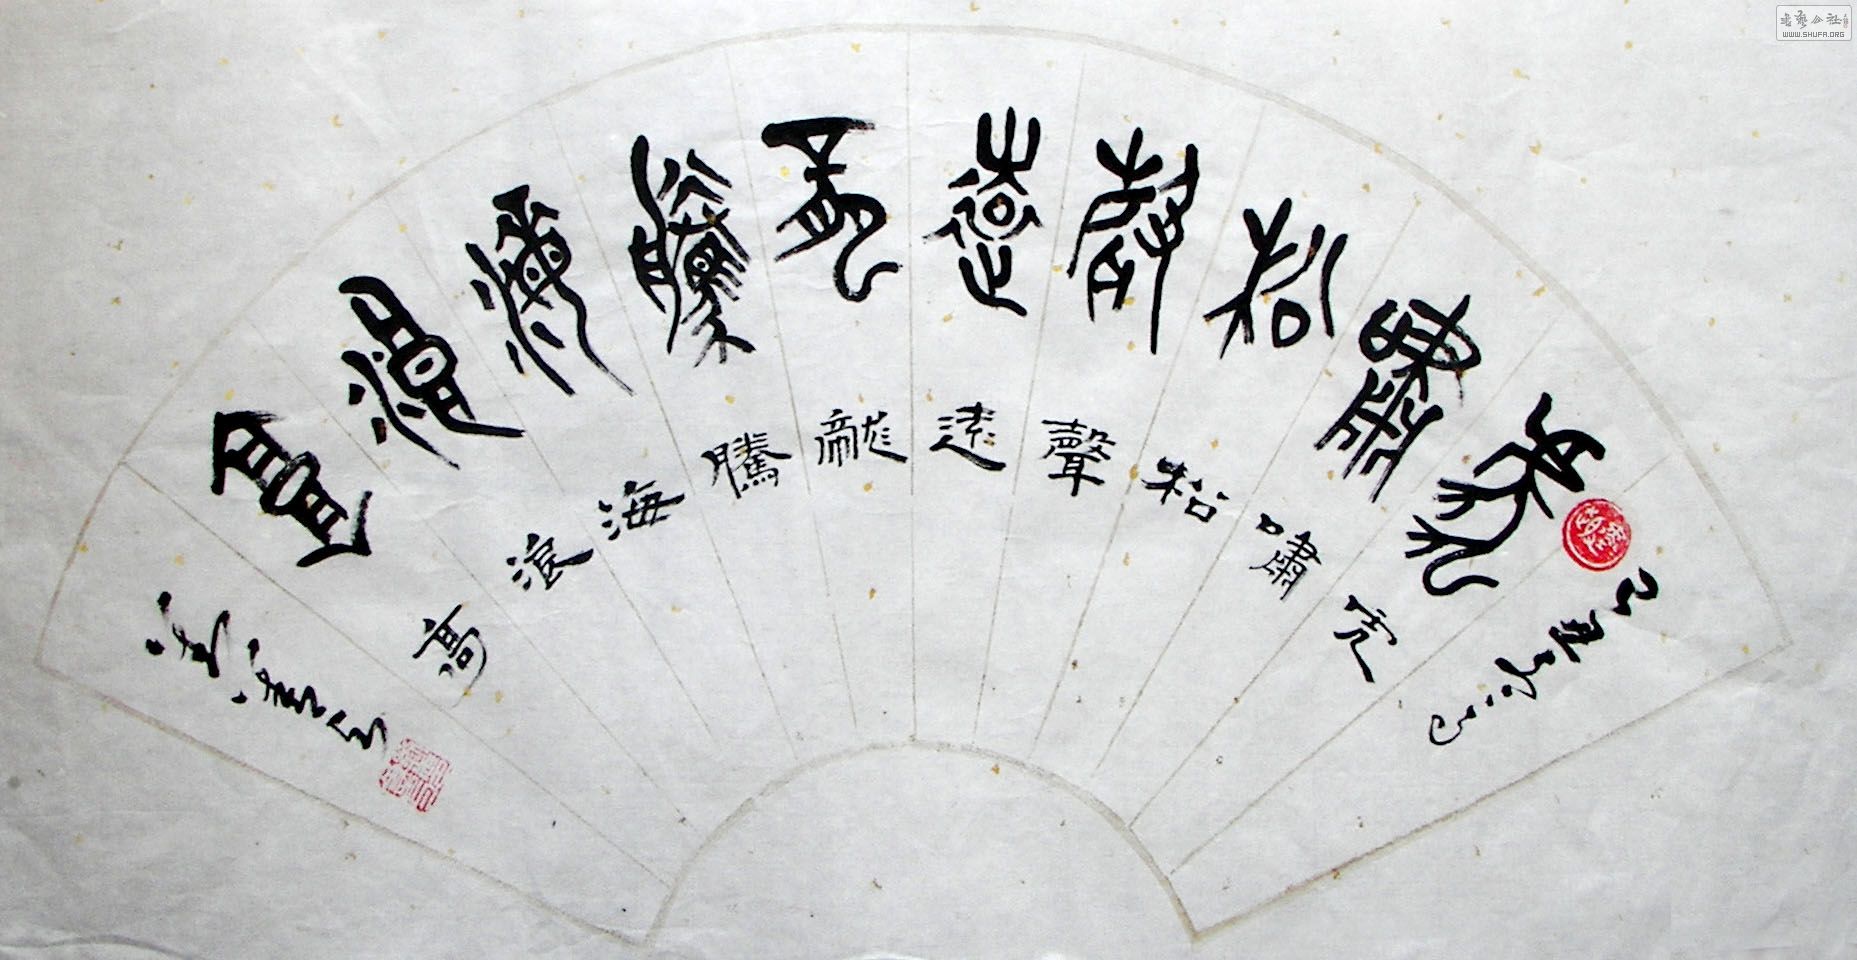 虎嘯松聲遠龍騰海浪高
虎嘯松聲遠龍騰海浪高
己丑
WWW.SHUFA.ORG